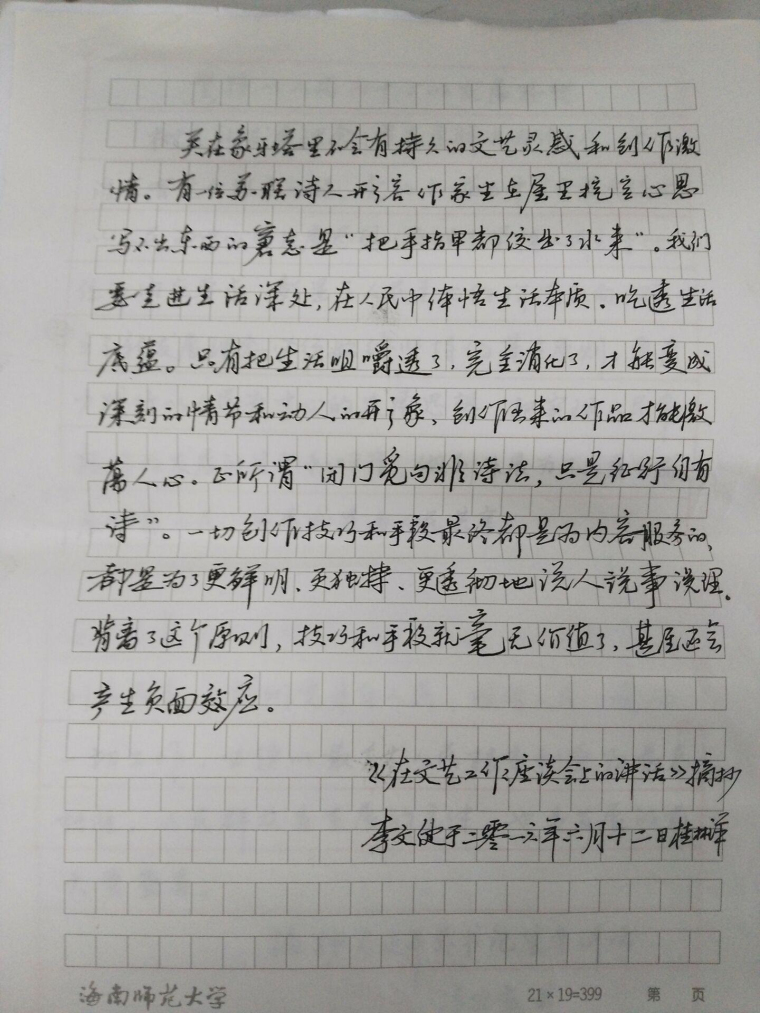 关在象牙塔里不会有持久的文艺灵感和创作激
情。有一位苏联诗人形容作家坐在屋里挖空心思
写不出东西的窘态是“把手指甲都绞出了水来”。我们
要走进生活深处，在人民中体悟生活本质、吃透生活
底蕴。只有把生活咀嚼透了，完全消化了，才能变成
深刻的情节和动人的形象，创作出来的作品才能激
荡人心。正所谓“闭门觅句非诗法，只是征行自有
诗”。一切创作技巧和手段最终都是为内容服务的，
都是为了更鲜明、更独特、更透彻地说人说事说理。
背离了这个原则，技巧和手段就毫无价值了，甚至还会
产生负面效应。
《在文艺工作座谈会上的讲话》摘抄
李文 于二零一六年六月十二日桂林洋
海南师范大学
21×19=399 第 页